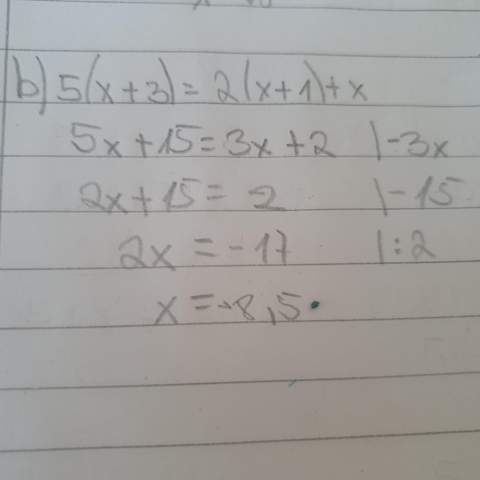 b) 5(x+3)=2(x+1)+x
5x+15=3x+2 |-3x
2x+15=2 |-15
2x=-17 |:2
x=-8,5